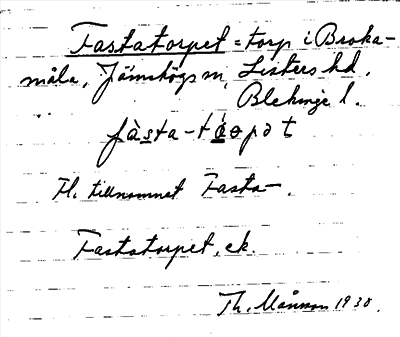 Fastatorpet = torp i Broka-
måla, Jämshögs sn, Listers hd,
Blekinge l.
fàsta-tɷrpət
Fl. tillnamnet Fasta-.
Fastatorpet, ek.
Th. Månsson 1930.